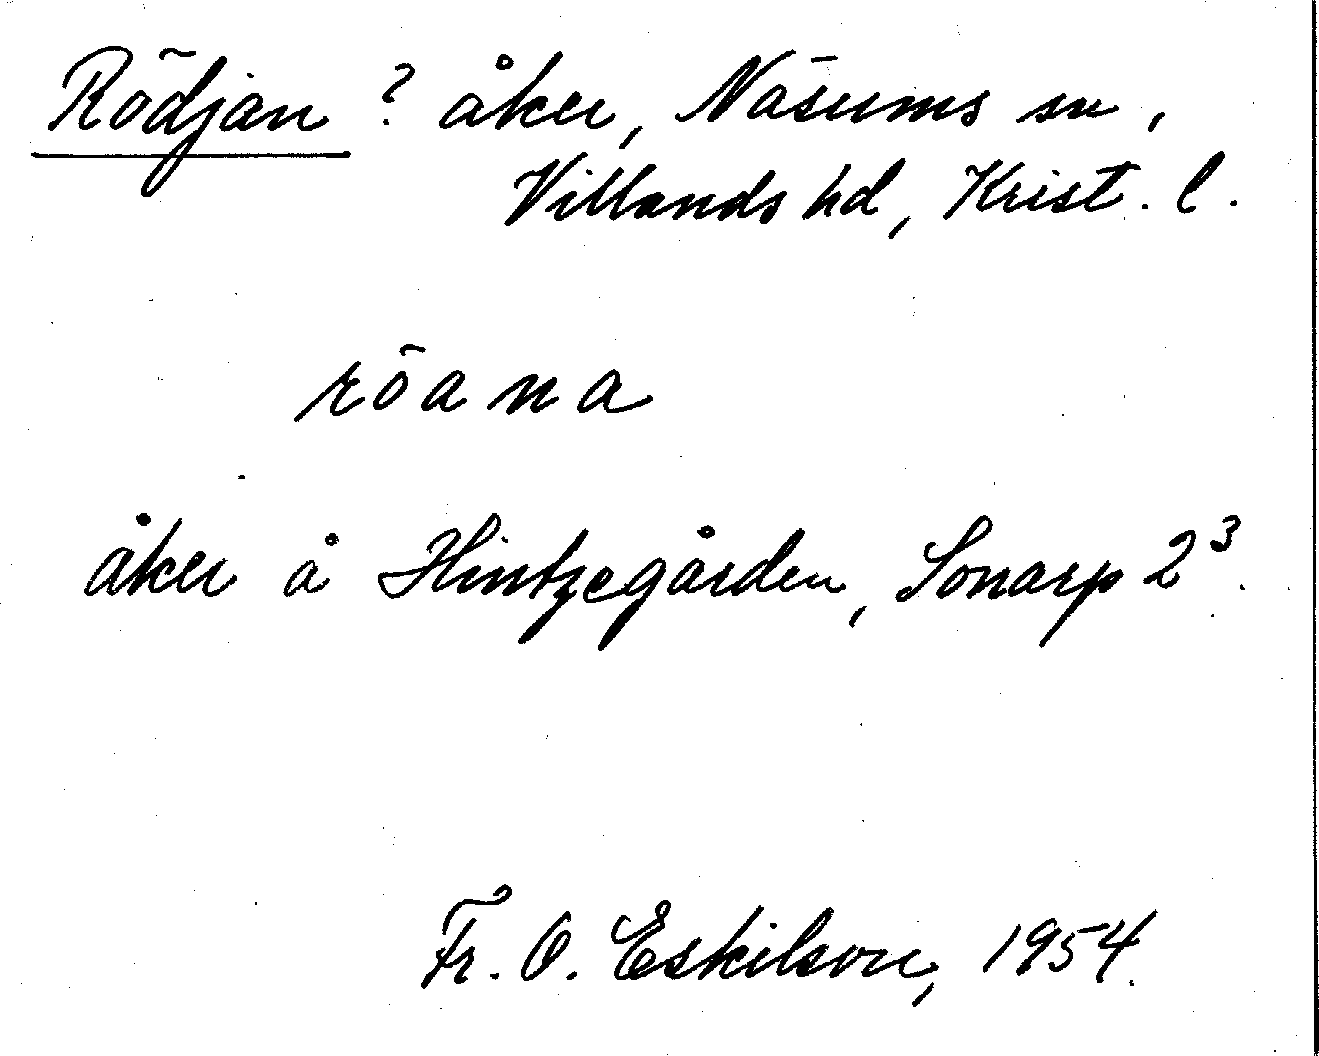 Rödjan ? åker, Näsums sn,
Villands hd, Krist. l.
röana
åker å Hintzegården, Sonarp 2³.
Fr. O. Eskilson, 1954.